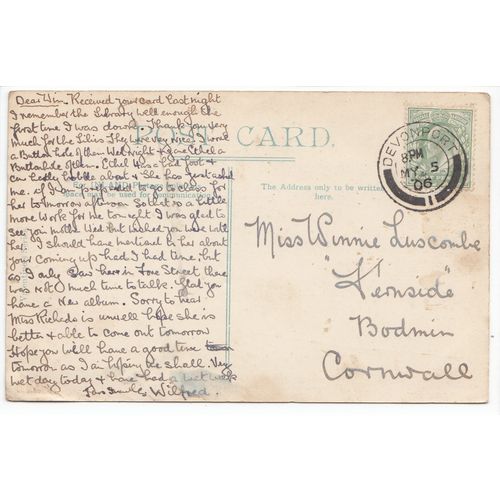 Dear Win. Received your card last night
I remember the Library well enough the
first time I was down. Thank you very
much for the Lilies They are very nice I wore
a Button hole of them Wed night & gave Ethel a
Buttonhole of them. Ethel has a bad foot &
can hardly hobble about & She has just asked
me if I am to go to class for
her tomorrow afternoon So that is a little
more work for me tonight I was glad to
see you
I should have mentioned to her about
your coming up had I had time but
as I only saw her in Fore Street there
was not much time to talk. Glad you
have a New album. Sorry to hear
Miss is unwell hope she is
better & able to come out tomorrow
Hope you will have a good time
tomorrow as I am hoping we shall. Very
wet day today & have had a wet week
Wilfred
POST CARD.
The Address only to be written
here.
DEVONPORT
8 PM
MY 5
06
1
Miss Winnie Luscombe
"Fernside"
Bodmin
Cornwall